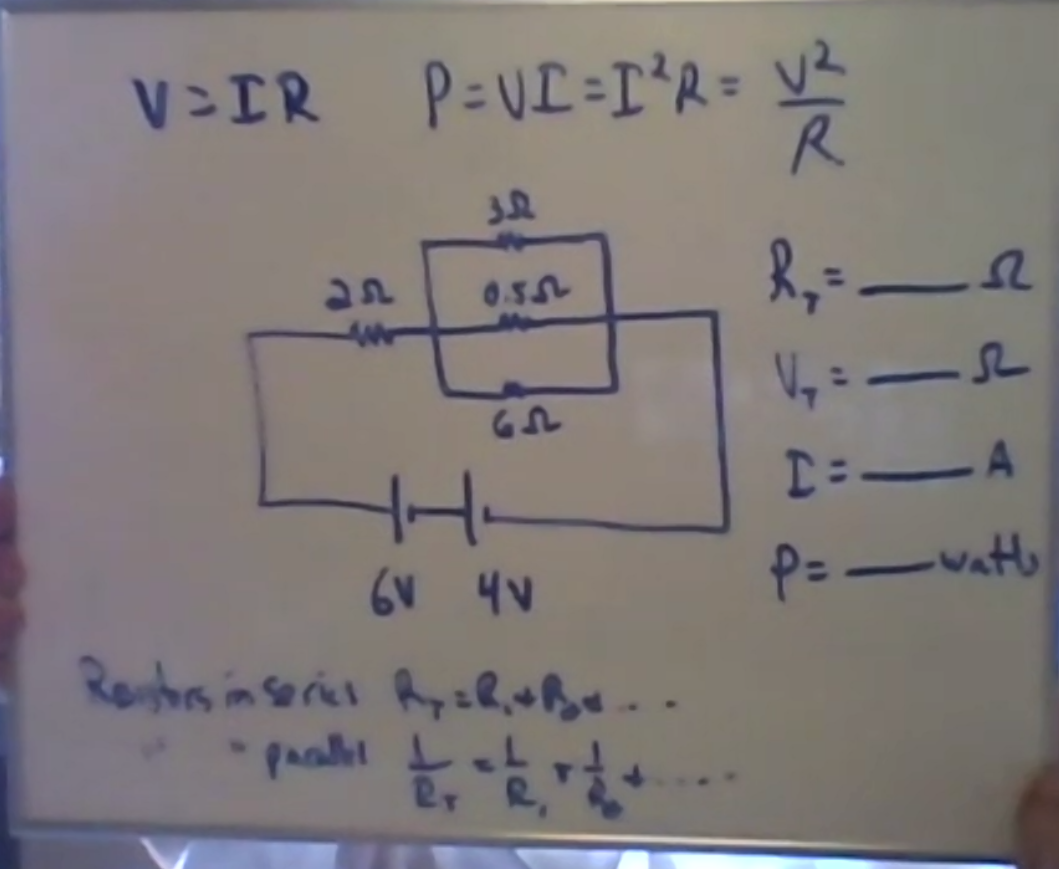 V = IR P = VI = I²R = V²/R
3Ω
2Ω 0.5Ω
6Ω
6V 4V
R_T = ____ Ω
V_T = ____ Ω
I = ____ A
P = ____ watts
Resistors in series R_T = R₁ + R₂ + ....
" parallel 1/R_T = 1/R₁ + 1/R₂ + ....